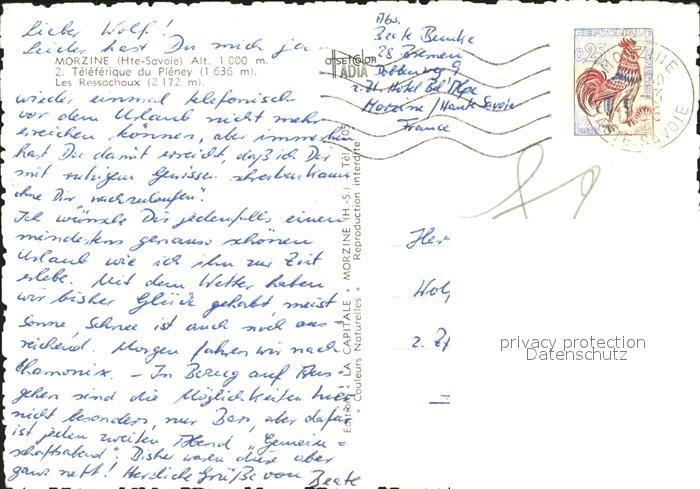 Lieber Wolf!
Leider hast Du mich ja
MORZINE (Hte-Savoie) Alt. 1 000 m.
2. Téléférique du Pléney (1 636 m).
Les Ressachaux (2 172 m).
wieder einmal telefonisch
vor dem Urlaub nicht mehr
erreichen können, aber immerhin
hast Du damit erreicht, daß ich Dir
mit ruhigem Gewissen schreiben kann
ohne Dir "nachzulaufen".
Ich wünsche Dir jedenfalls einen
mindestens genauso schönen
Urlaub wie ich ihn zur Zeit
erlebe. Mit dem Wetter haben
wir bisher Glück gehabt, meist
Sonne, Schnee ist auch noch aus-
reichend. Morgen fahren wir nach
Chamonix. - In Bezug auf Aus-
gehen sind die Möglichkeiten hier
nicht besonders, nur Bars, aber dafür
ist jeden zweiten Abend "Gemein-
schaftsabend". Bisher waren diese aber
ganz nett! Herzliche Grüße von Beate
Abs.
Beate
28 Bremen
z. Zt. Hotel Bel'Alpe
Morzine / Haute Savoie
France
OFFSET COLOR
IADIA
Edition " LA CAPITALE " MORZINE (H.-S.) Tél. 105
" Couleurs Naturelles " Reproduction interdite
REPUBLIQUE
0,25
MORZINE
HTE SAVOIE
Her
Wol
z. Zt
privacy protection
Datenschutz